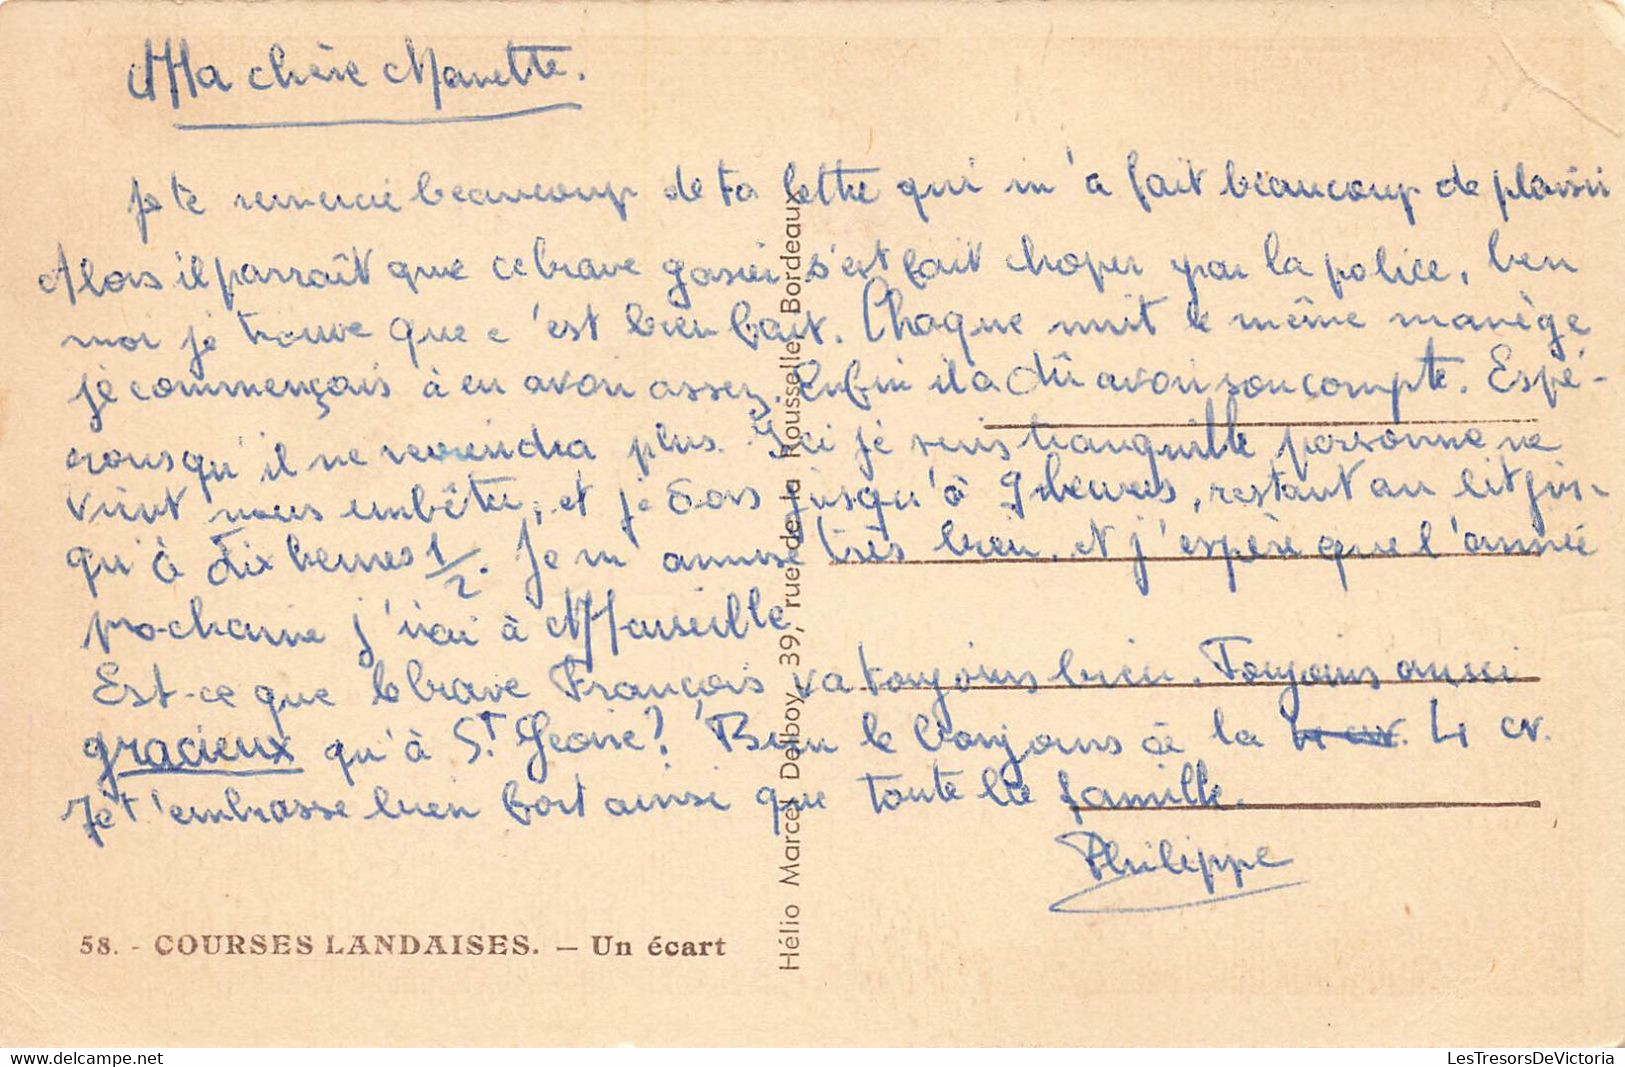 Ma chère Manette.
Je te remercie beaucoup de ta lettre qui m'a fait beaucoup de plaisir
Alors il parraît que ce brave gasier s'est fait choper par la police, ben
moi je trouve que c'est bien fait. Chaque nuit le même manège
je commençais à en avoir assez. Enfin il a dû avoir son compte. Espé-
rons qu'il ne reviendra plus. Ici je suis tranquille personne ne
vient nous embêter, et je dors jusqu'à 9 heures, restant au lit jus-
qu'à dix heures 1/2. Je m'amuse très bien. et j'espère que l'année
prochaine j'irai à Marseille
Est-ce que le brave François va toujours bien. Toujours aussi
gracieux qu'à St Geoire? Bien le bonjours de la 4 cv.
Je t'embrasse bien fort ainsi que toute la famille.
Philippe
58. - COURSES LANDAISES. — Un écart
Hélio Marcel Delboy 39, rue de la Rousselle Bordeaux
delcampe.net
LesTresorsDeVictoria